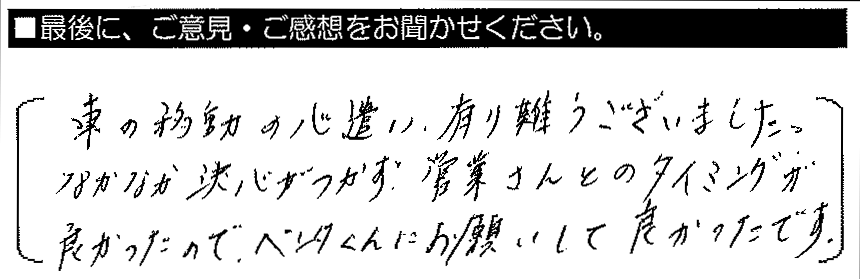 ■最後に、ご意見・ご感想をお聞かせください。
車の移動の心遣い、有り難うございました。
なかなか決心がつかず、営業さんとのタイミングが
良かったので、ペンタくんにお願いして良かったです。